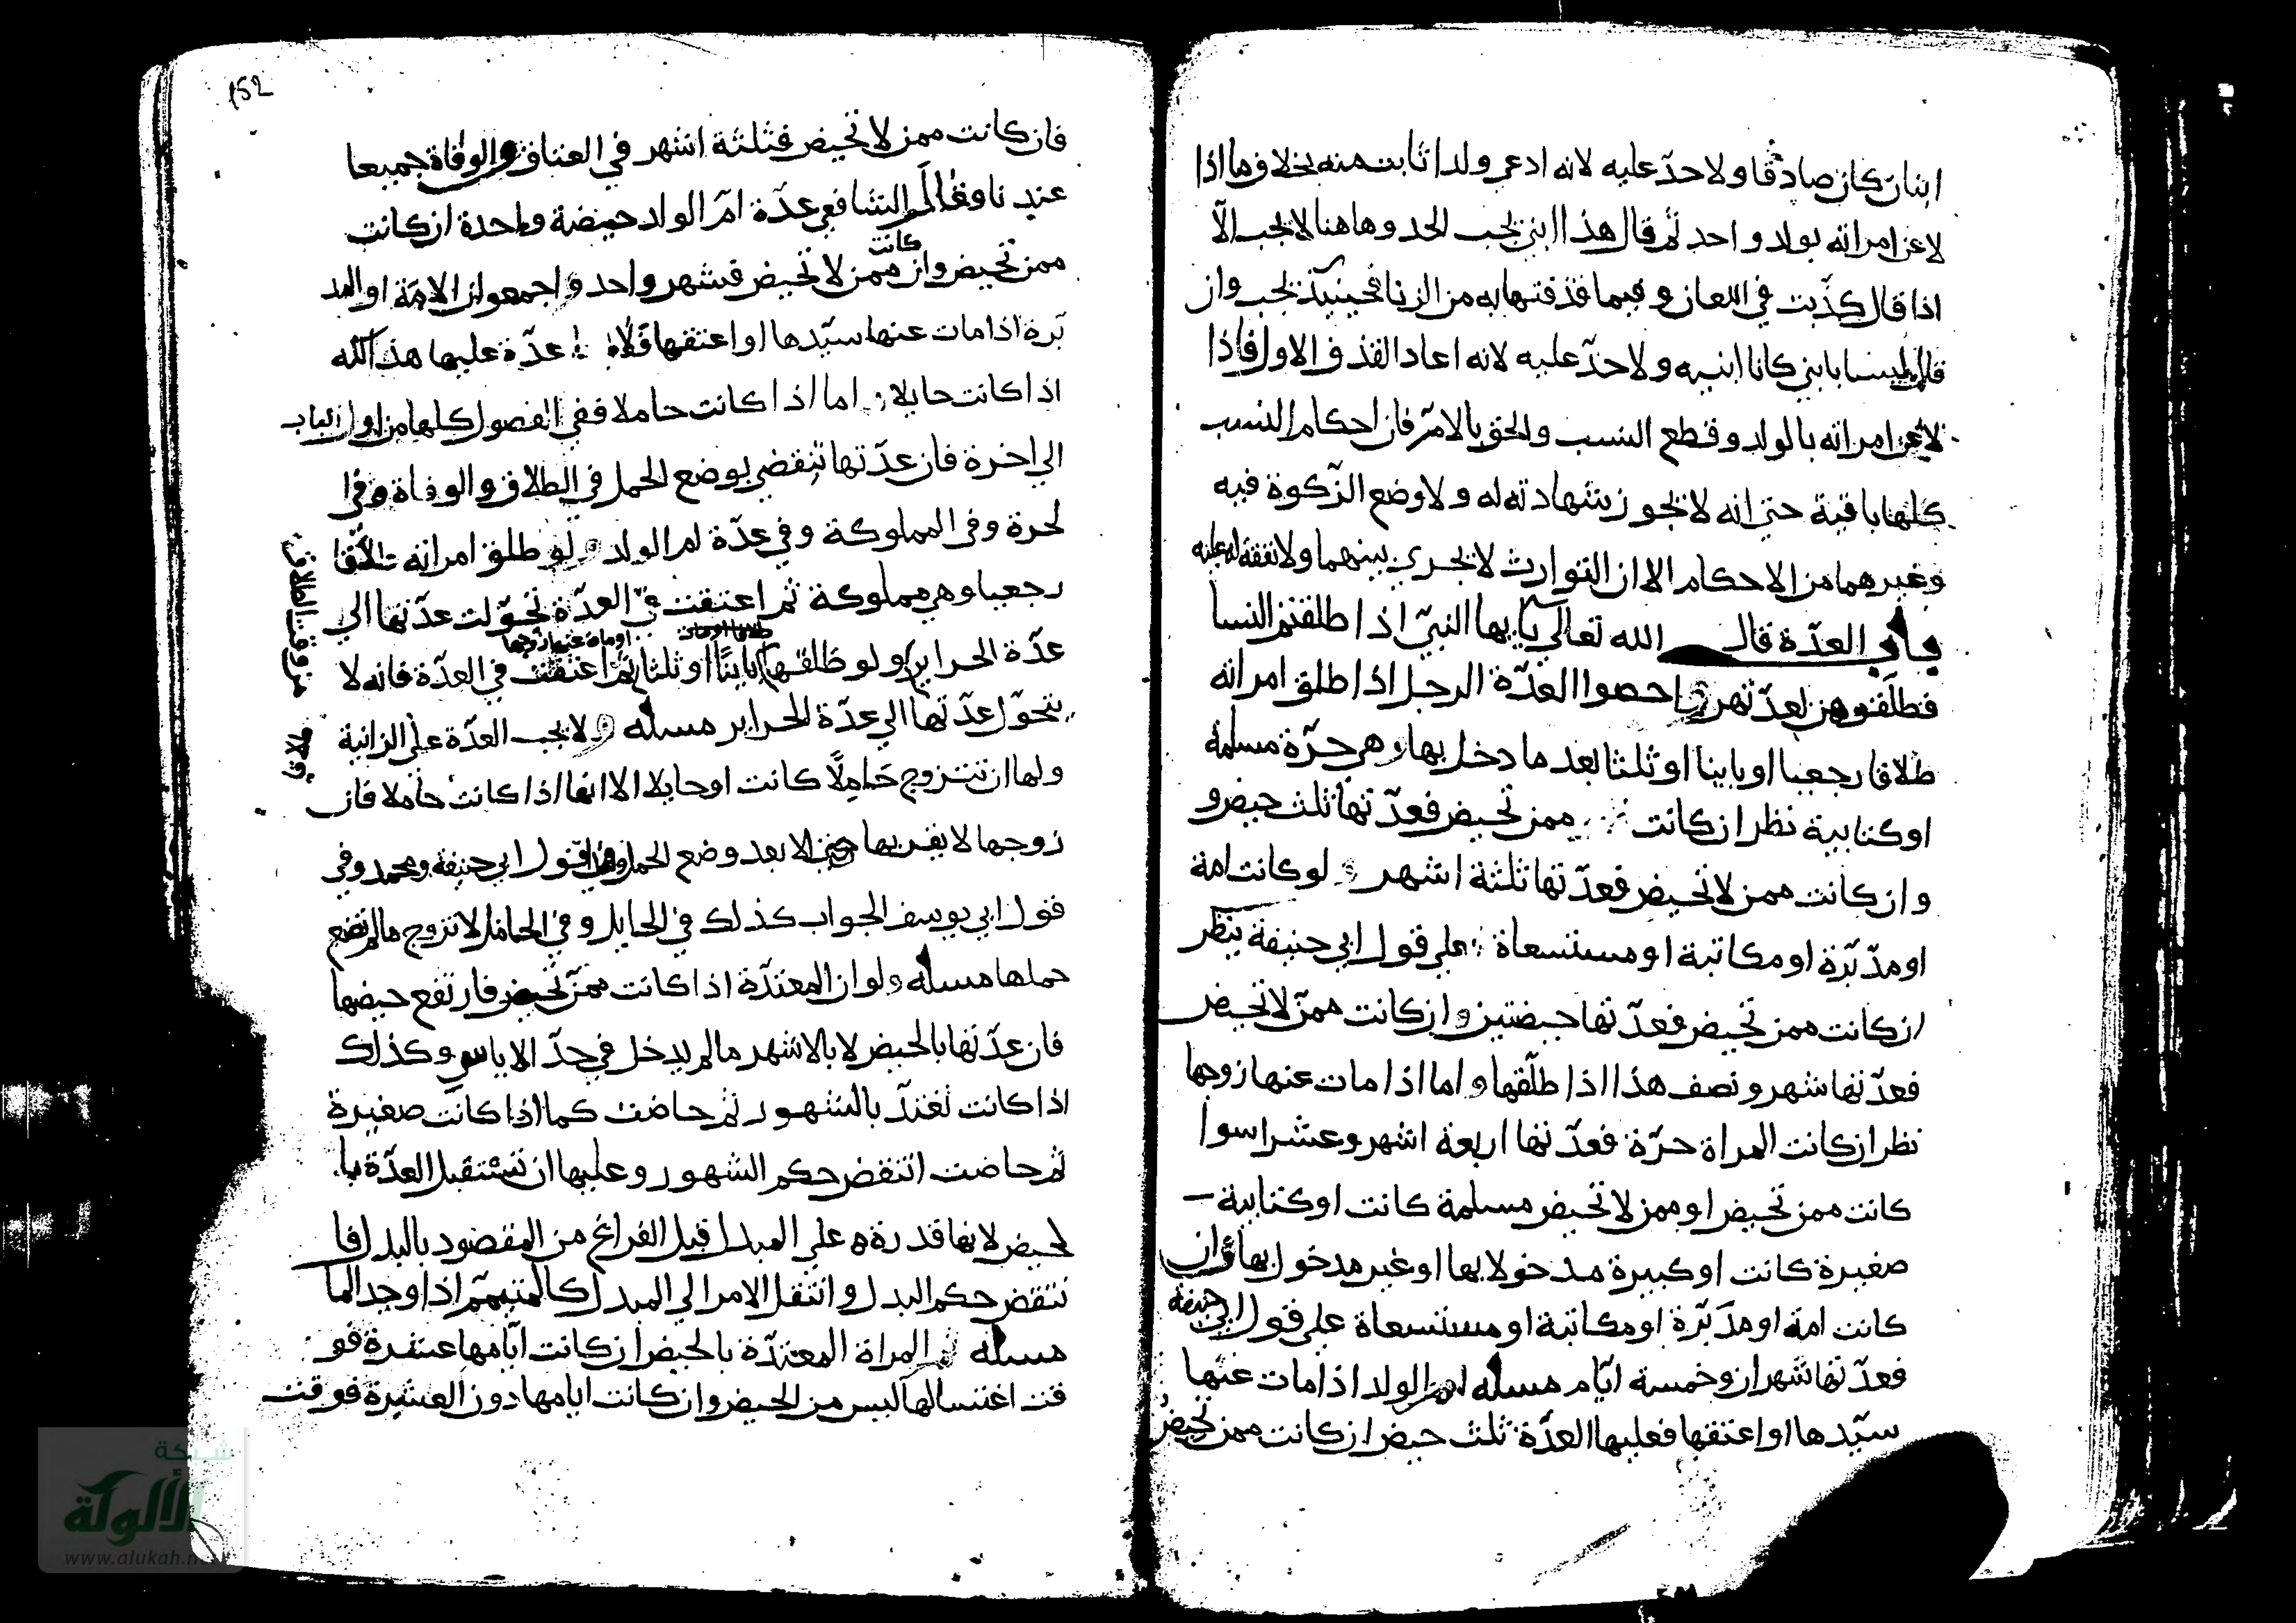 ابنان كان صادقا ولا حدّ عليه لانه ادعى ولدا ثابت منه بخلاف ما اذا
لاعن امراته بولد واحد ثم قال هذا ابني يجب الحد وهاهنا لا يجب الّا
اذا قال كذبت في اللعان وفيما قذفتها به من الزنا فحينئذ يجب وان
قال ليسا بابني كانا ابنيه ولا حدّ عليه لانه اعاد القذف الاول فاذا
لاعن امراته بالولد وقطع النسب والحق بالامّ فان احكام النسب
كلها باقية حتى انه لا تجوز شهادته له ولا وضع الزكوة فيه
وغيرهما من الاحكام الا ان التوارث لا يجري بينهما ولا نفقة له عليه
باب في العدّة قال الله تعالى يا يها النبيّ اذا طلقتم النسا
فطلّقوهن لعدّتهن واحصوا العدّة الرجل اذا طلق امراته
طلاقا رجعيا او باينا او ثلثا بعد ما دخل بها وهي حرّة مسلمة
او كتابية نظر ان كانت ممن تحيض فعدّتها ثلث حيض و
وان كانت ممن لا تحيض فعدّتها ثلثة اشهر ولو كانت امة
او مدبّرة او مكاتبة او مستسعاة على قول ابي حنيفة ينظر
ان كانت ممن تحيض فعدّتها حيضتين وان كانت ممّن لا تحيض
فعدّتها شهر ونصف هذا اذا طلّقها واما اذا مات عنها زوجها
نظر ان كانت المراة حرّة فعدّتها اربعة اشهر وعشرا سوا
كانت ممن تحيض او ممن لا تحيض مسلمة كانت او كتابية
صغيرة كانت او كبيرة مدخولا بها او غير مدخول بها وان
كانت امة او مدبّرة او مكاتبة او مستسعاة على قول ابي حنيفة
فعدّتها شهران وخمسة ايّام مسله ام الولد اذا مات عنها
سيّدها او اعتقها فعليها العدّة ثلث حيض ان كانت ممن تحيض
152
فان كانت ممن لا تحيض فثلثة اشهر في العتاق والوفاة جميعا
عندنا وقال الشافعي عدّة امّ الولد حيضة واحدة ان كانت
ممن تحيض وان كانت ممن لا تحيض فشهر واحد واجمعوا ان الامة او المد
بّرة اذا مات عنها سيّدها او اعتقها فلا عدّة عليها هذا كله
اذا كانت حايلا اما اذا كانت حاملا ففي الفصول كلها من اول الباب
الى اخرة فان عدّتها تنقضي بوضع الحمل في الطلاق والوفاة وفي ا
لحرة وفي المملوكة وفي عدّة ام الولد ولو طلق امراته طلاقا
رجعيا وهي مملوكة ثم اعتقت في العدّة تحوّلت عدّتها الى
عدّة الحراير ولو طلقها باينًا او ثلثا او مات عنها زوجها ثم اعتقت في العدّة فانه لا
يتحوّل عدّتها الى عدّة الحراير مسله ولا يجب العدّة على الزانية
ولها ان تتزوج حَامِلًا كانت او حايلا الا انها اذا كانت حاملا فان
زوجها لا يقربها الا بعد وضع الحمل وهذا قول ابي حنيفة ومحمد وفي
قول ابي يوسف الجواب كذلك في الحايل وفي الحامل لا تزوج ما لم تضع
حملها مسله ولو ان المعتدّة اذا كانت ممّن تحيض فارتفع حيضها
فان عدّتها بالحيض لا بالاشهر ما لم يدخل في حدّ الاياس وكذلك
اذا كانت تعتدّ بالشهور ثم حاضت كما اذا كانت صغيرة
ثم حاضت انتقض حكم الشهور وعليها ان تستقبل العدّة با
لحيض لانها قدرة على المبدل قبل الفراغ من المقصود بالبدل فا
نتقض حكم البدل وانتقل الامر الى المبدل كالمتيمّم اذا وجد الما
مسله المراة المعتدّة بالحيض ان كانت ايّامها عشرة فو
قت اغتسالها ليس من الحيض وان كانت ايامها دون العشرة فوقت
من وقت الطلاق
شبكة
الألوكة